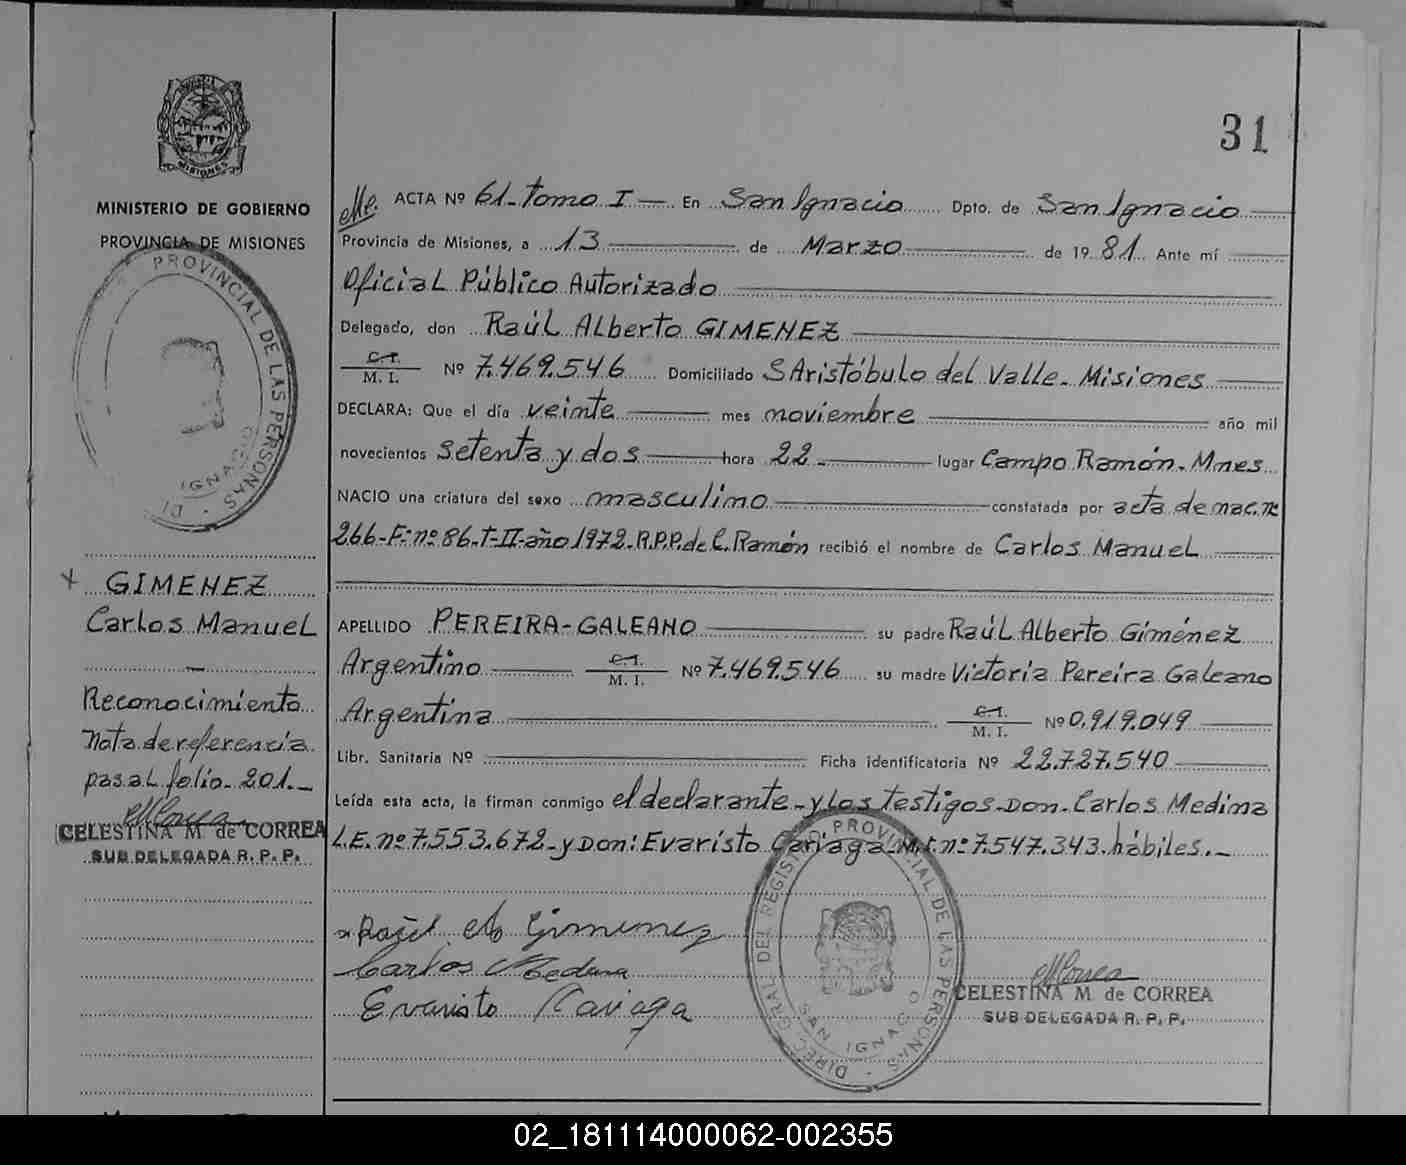 31
MISIONES
MINISTERIO DE GOBIERNO
PROVINCIA DE MISIONES
PROVINCIAL DE LAS PERSONAS
IGNACIO
GIMENEZ
Carlos Manuel
Reconocimiento
nota de referencia
pasa al folio - 201.-
CELESTINA M de CORREA
SUB DELEGADA R. P. P.
ACTA Nº 61- Tomo I — En San Ignacio Dpto. de San Ignacio
Provincia de Misiones, a 13 de Marzo de 1981. Ante mí
Oficial Público Autorizado
Delegado, don Raúl Alberto GIMENEZ
C.I.
M. I. Nº 7.469.546 Domiciliado S Aristóbulo del Valle - Misiones
DECLARA: Que el día veinte mes noviembre año mil
novecientos setenta y dos hora 22 - lugar Campo Ramón - Mnes
NACIO una criatura del sexo masculino constatada por acta de nac. nº
266-Fº nº 86-T-II-año 1972-R.P.P. de C. Ramón recibió el nombre de Carlos Manuel
APELLIDO PEREIRA-GALEANO su padre Raúl Alberto Giménez
Argentino C.I. M. I. Nº 7.469.546 su madre Victoria Pereira Galeano
Argentina C.I. M. I. Nº 0.919.049
Libr. Sanitaria Nº Ficha identificatoria Nº 22.727.540
Leída esta acta, la firman conmigo el declarante - y los testigos - Don - Carlos Medina
L.E. nº 7.553.672 - y Don: Evaristo Cariaga M.I. nº 7.547.343. hábiles.-
Raúl Ab Gimenez
Carlos Medina
Evaristo Cariaga
DIREC. GRAL DEL REGISTRO PROVINCIAL DE LAS PERSONAS
SAN IGNACIO
CELESTINA M de CORREA
SUB DELEGADA R. P. P.
02_181114000062-002355